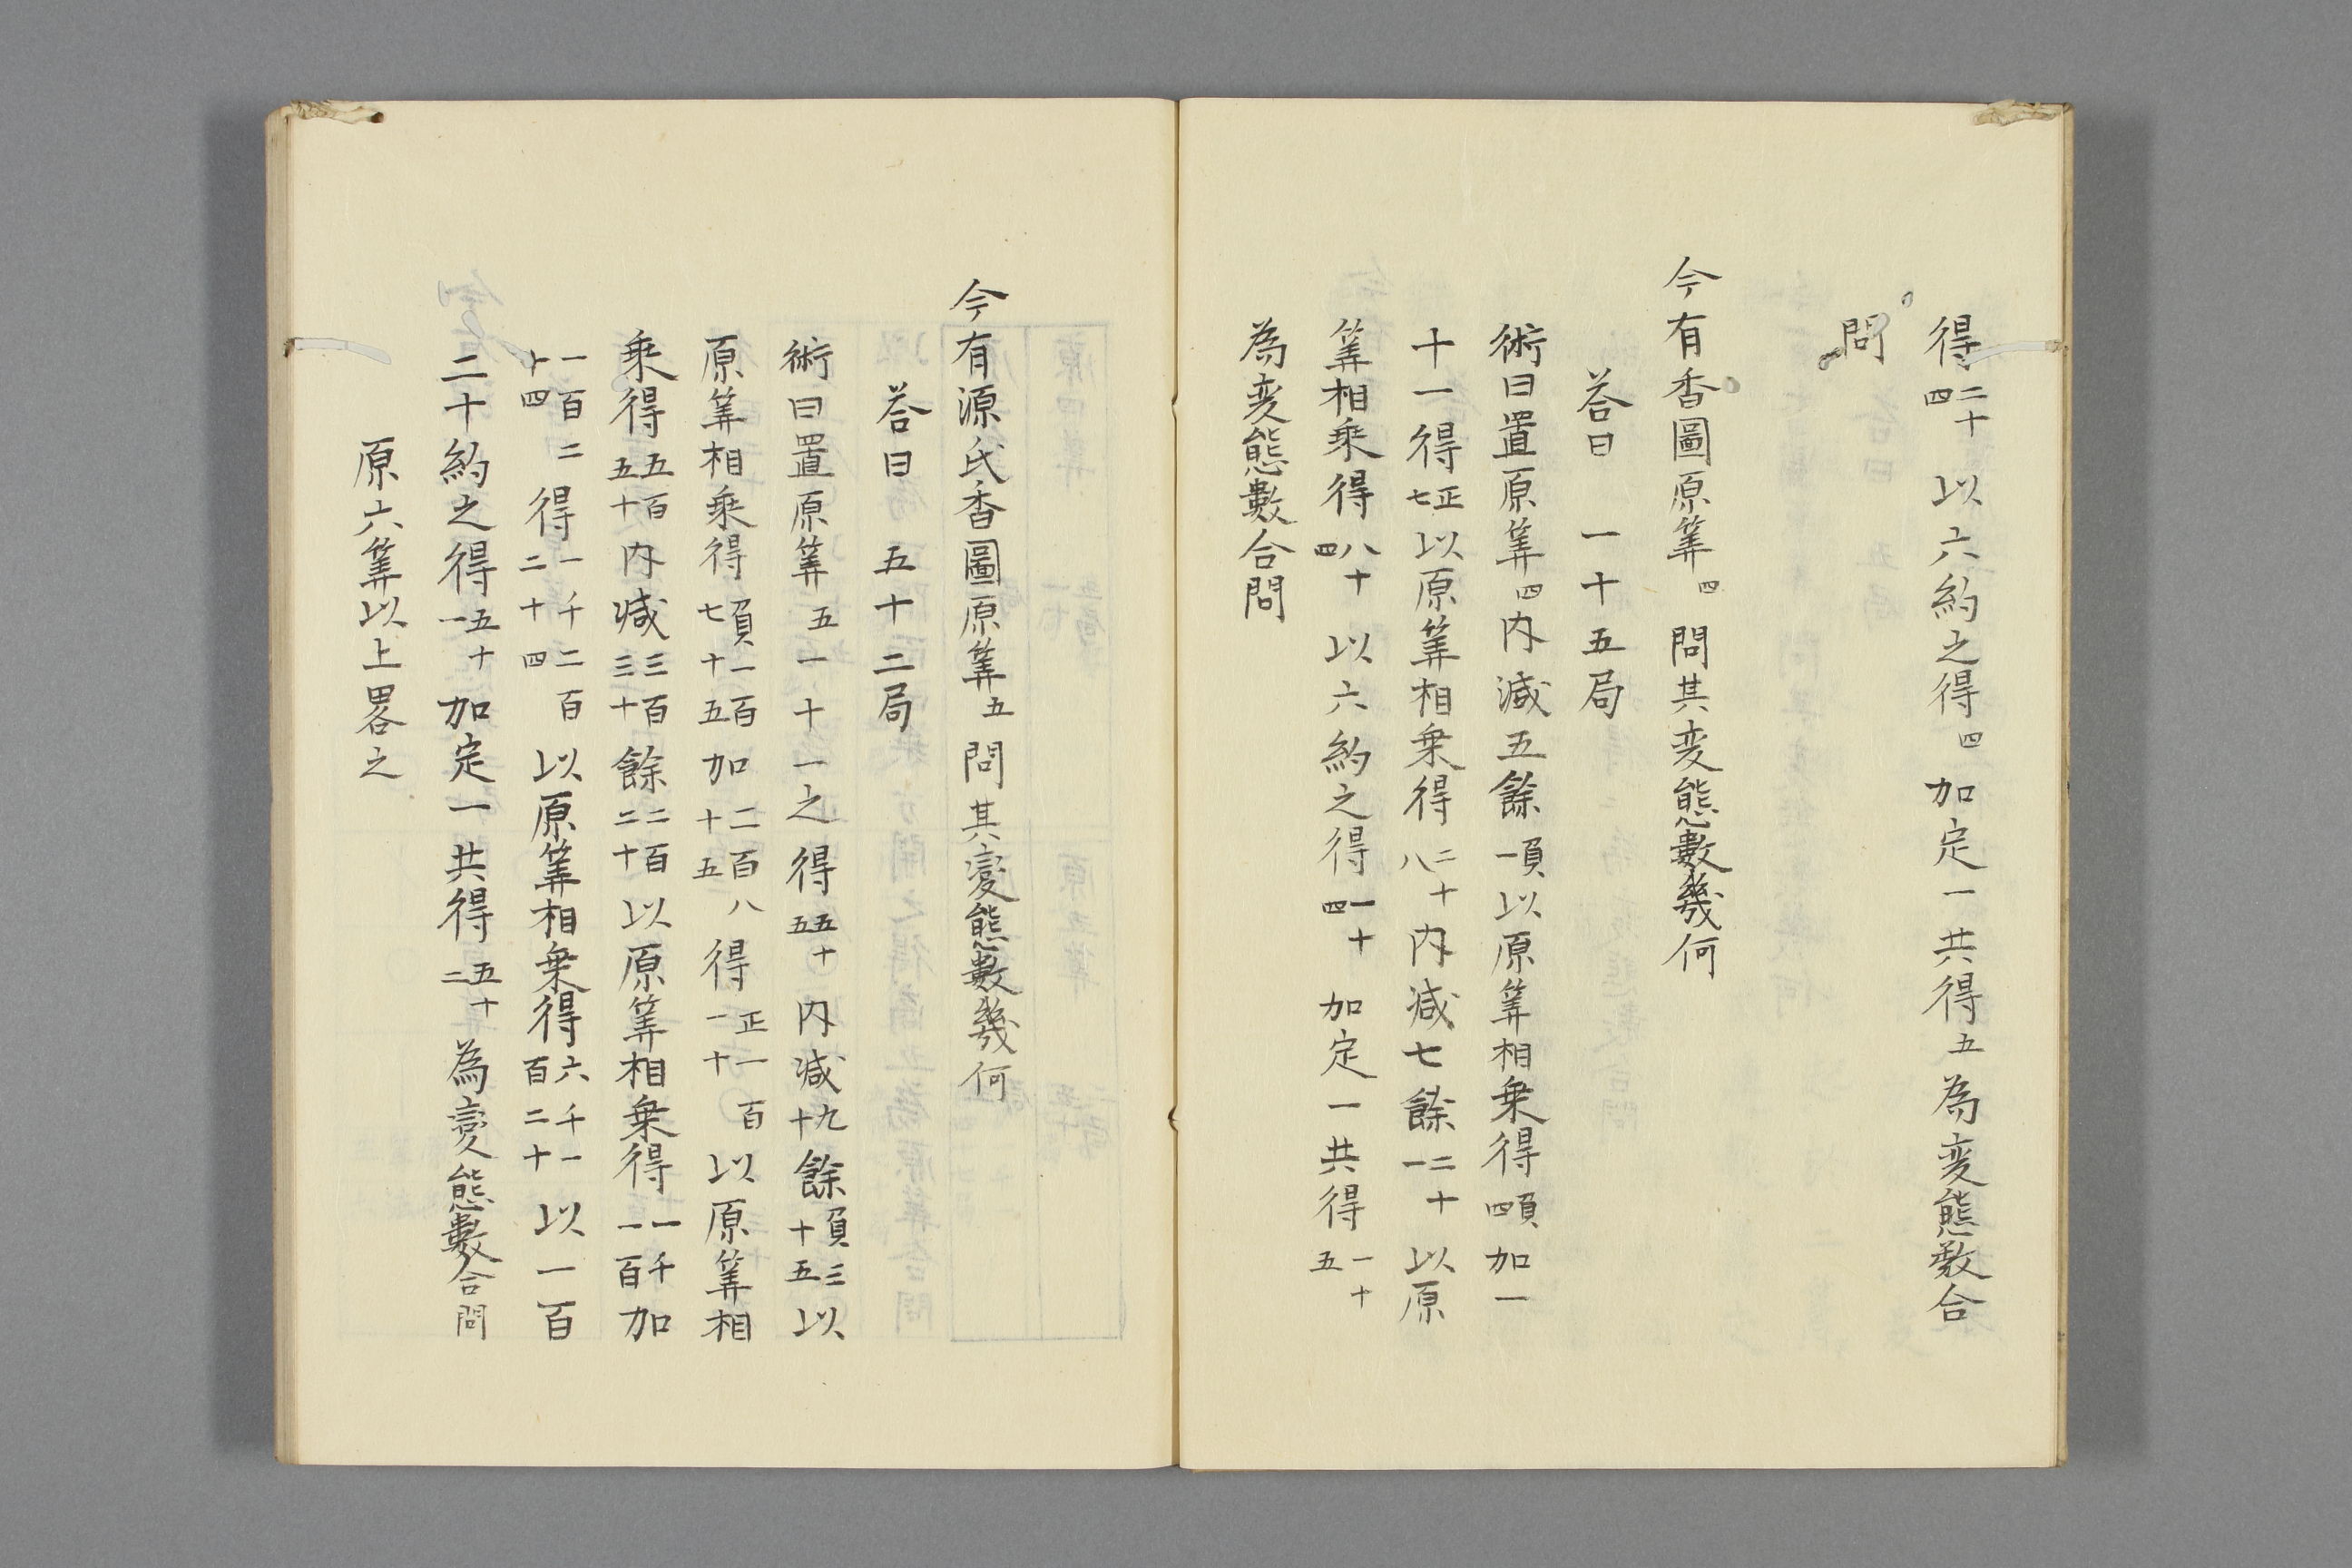 得二十四以六約之得四加定一共得五為変態数合
問
今有香圖原筭四問其変態數幾何
荅曰 一十五局
術曰置原筭四内減五餘負一以原筭相乗得負四加一
十一得正七以原筭相乗得二十八内減七餘二十一以原
筭相乗得八十四以六約之得一十四加定一共得一十五
為変態數合問
今有源氏香圖原筭五問其變態數幾何
荅曰 五十二局
術曰置原筭五一十一之得五十五内減九十餘負三十五以
原筭相乗得負一百七十五加二百八十五得正一百一十以原筭相
乗得五百五十内減三百三十餘二百二十以原筭相乗得一千一百加
一百二十四得一千二百二十四以原筭相乗得六千一百二十以一百
二十約之得五十一加定一共得五十二為變態數合問
原六筭以上畧之